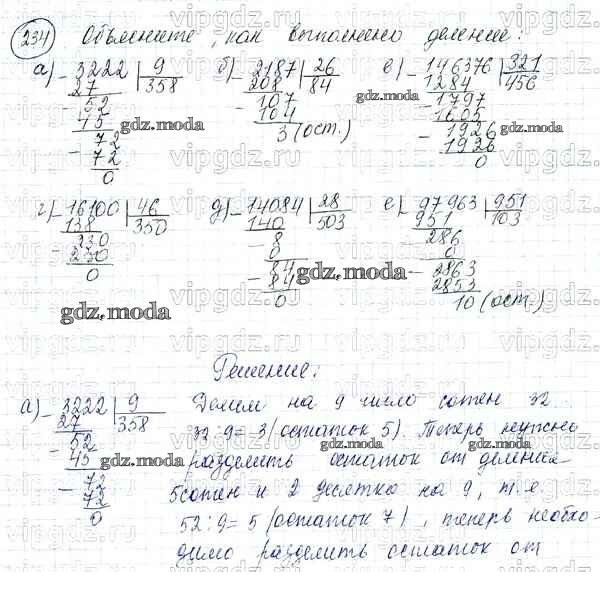 234 Объясните, как выполнено деление:
а) 3222 | 9 б) 2187 | 26 в) 146376 | 321
27 358 208 84 1284 456
52 107 1797
45 104 1605
72 3 (ост.) 1926
72 1926
0 0
г) 16100 | 46 д) 14084 | 28 е) 97963 | 951
138 350 140 503 951 103
230 8 286
230 0 0
0 84 2863
84 2853
0 10 (ост.)
Решение:
а) 3222 | 9 Делим на 9 число сотен 32
27 358 32:9=3 (остаток 5). Теперь нужно
52 разделить остаток от деления
45 5 сотен и 2 десятка на 9, т.е.
72 52:9=5 (остаток 7), теперь необхо-
72 димо разделить остаток от
0
gdz.moda
vipgdz.ru